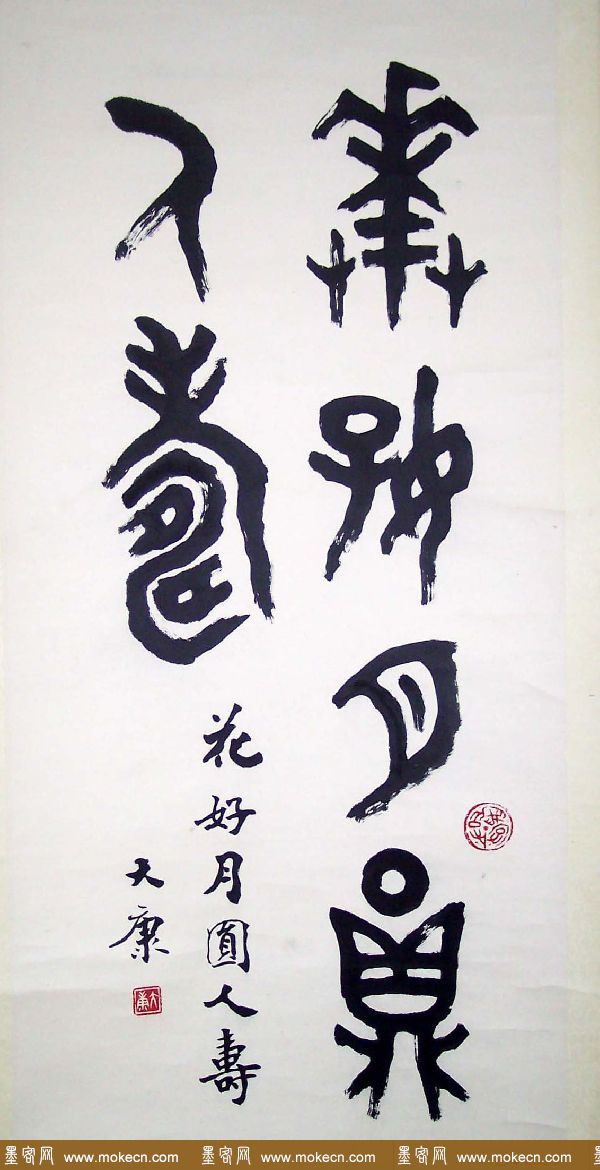 華好月員
人壽
花好月圓人壽
大康
大康
墨客网 www.mokecn.com 墨客网 www.mokecn.com 墨客网 www.mokecn.com